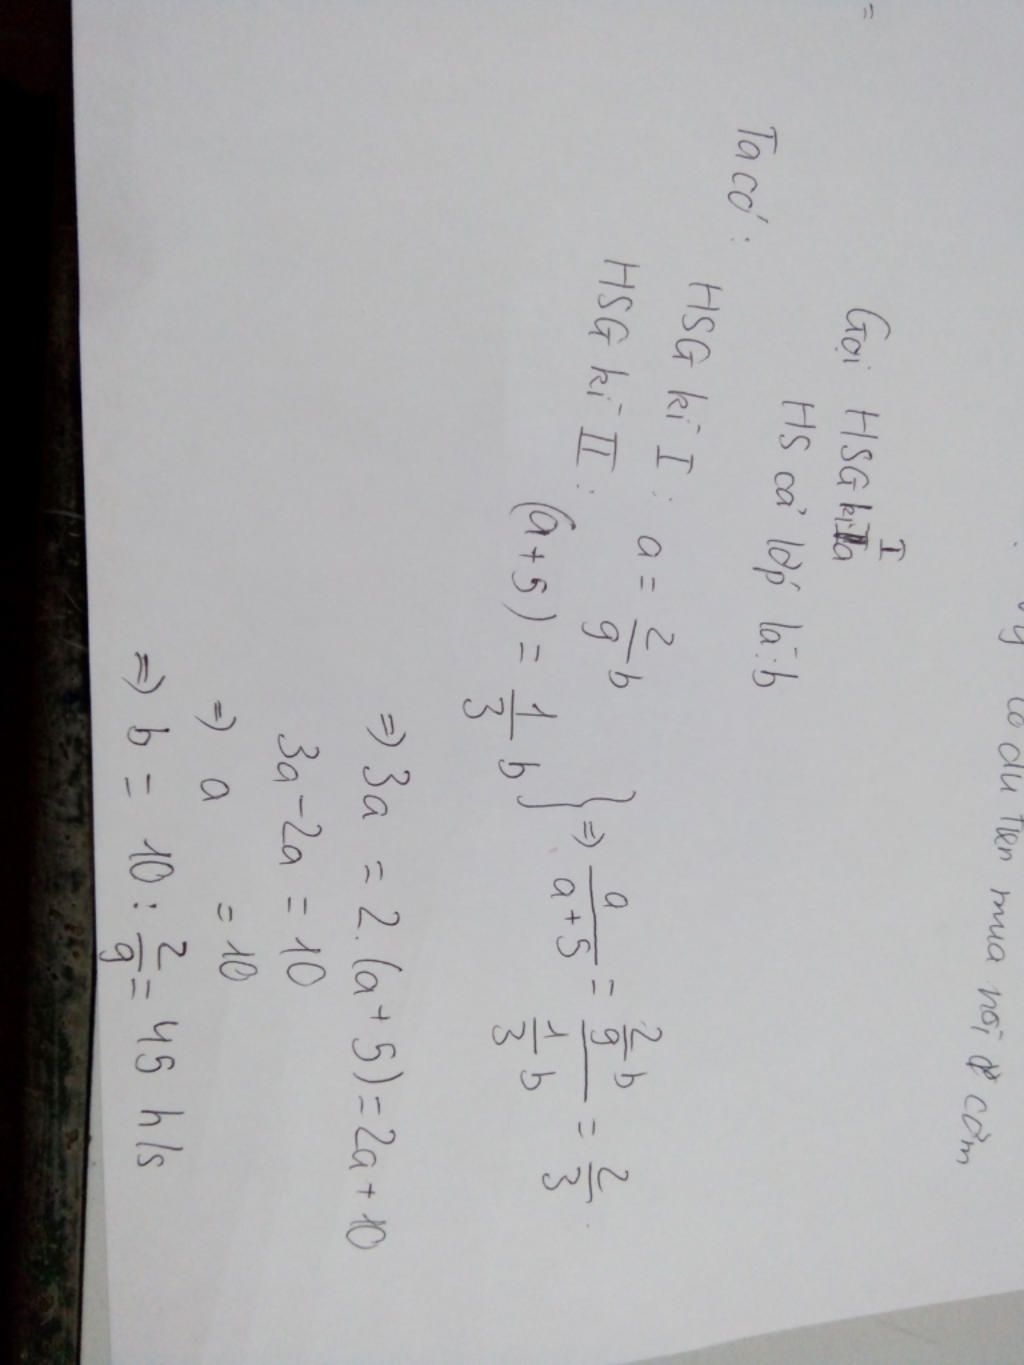 có đủ tiền mua nồi cơm
=
Gọi HSG kì I là a
HS cả lớp là: b
Ta có: HSG kì I: a = 2/9 b
HSG kì II: (a+5) = 1/3 b } => a/(a+5) = (2/9 b)/(1/3 b) = 2/3
=> 3a = 2.(a+5) = 2a+10
3a-2a = 10
=> a = 10
=> b = 10 : 2/9 = 45 h/s